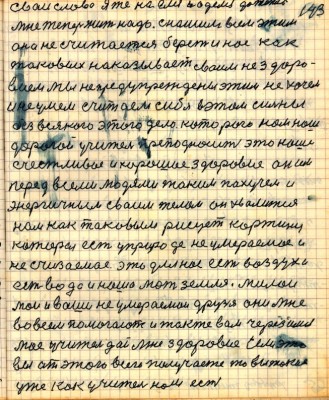 143
свои слово я те на
мне теперь жит надо. с нашим всем этим
она не считается берет и нас как
таковых наказывает своим не здоро-
вием мы не предупреждены этим не хочем
и не умеем считаем себя в этом сильны
без всякого этого дело которого нам наш
дорогой учител преподносит это наше
счестливое и хорошое здоровие он им
перед всеми людями таким пахучем и
энергичным своим телом он хвалится
нам как таковым рисует картину
которая ест у природе не умераемое и
не счизаемое это длячое ест воздух и
ест водо и наша мот земля. милои
мои и ваши не умераемои друзя они мне
во всем помогают и также вам через ими
мое учител дай мне здоровие если это
вы от этого всего получаете то вытокое
уже как учител нам ест